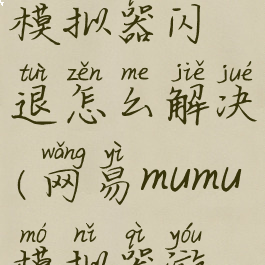 模拟器闪
tuì zěn me jiě jué
退怎么解决
wǎng yì
(网易mumu
mó nǐ qì yóu
模拟器游